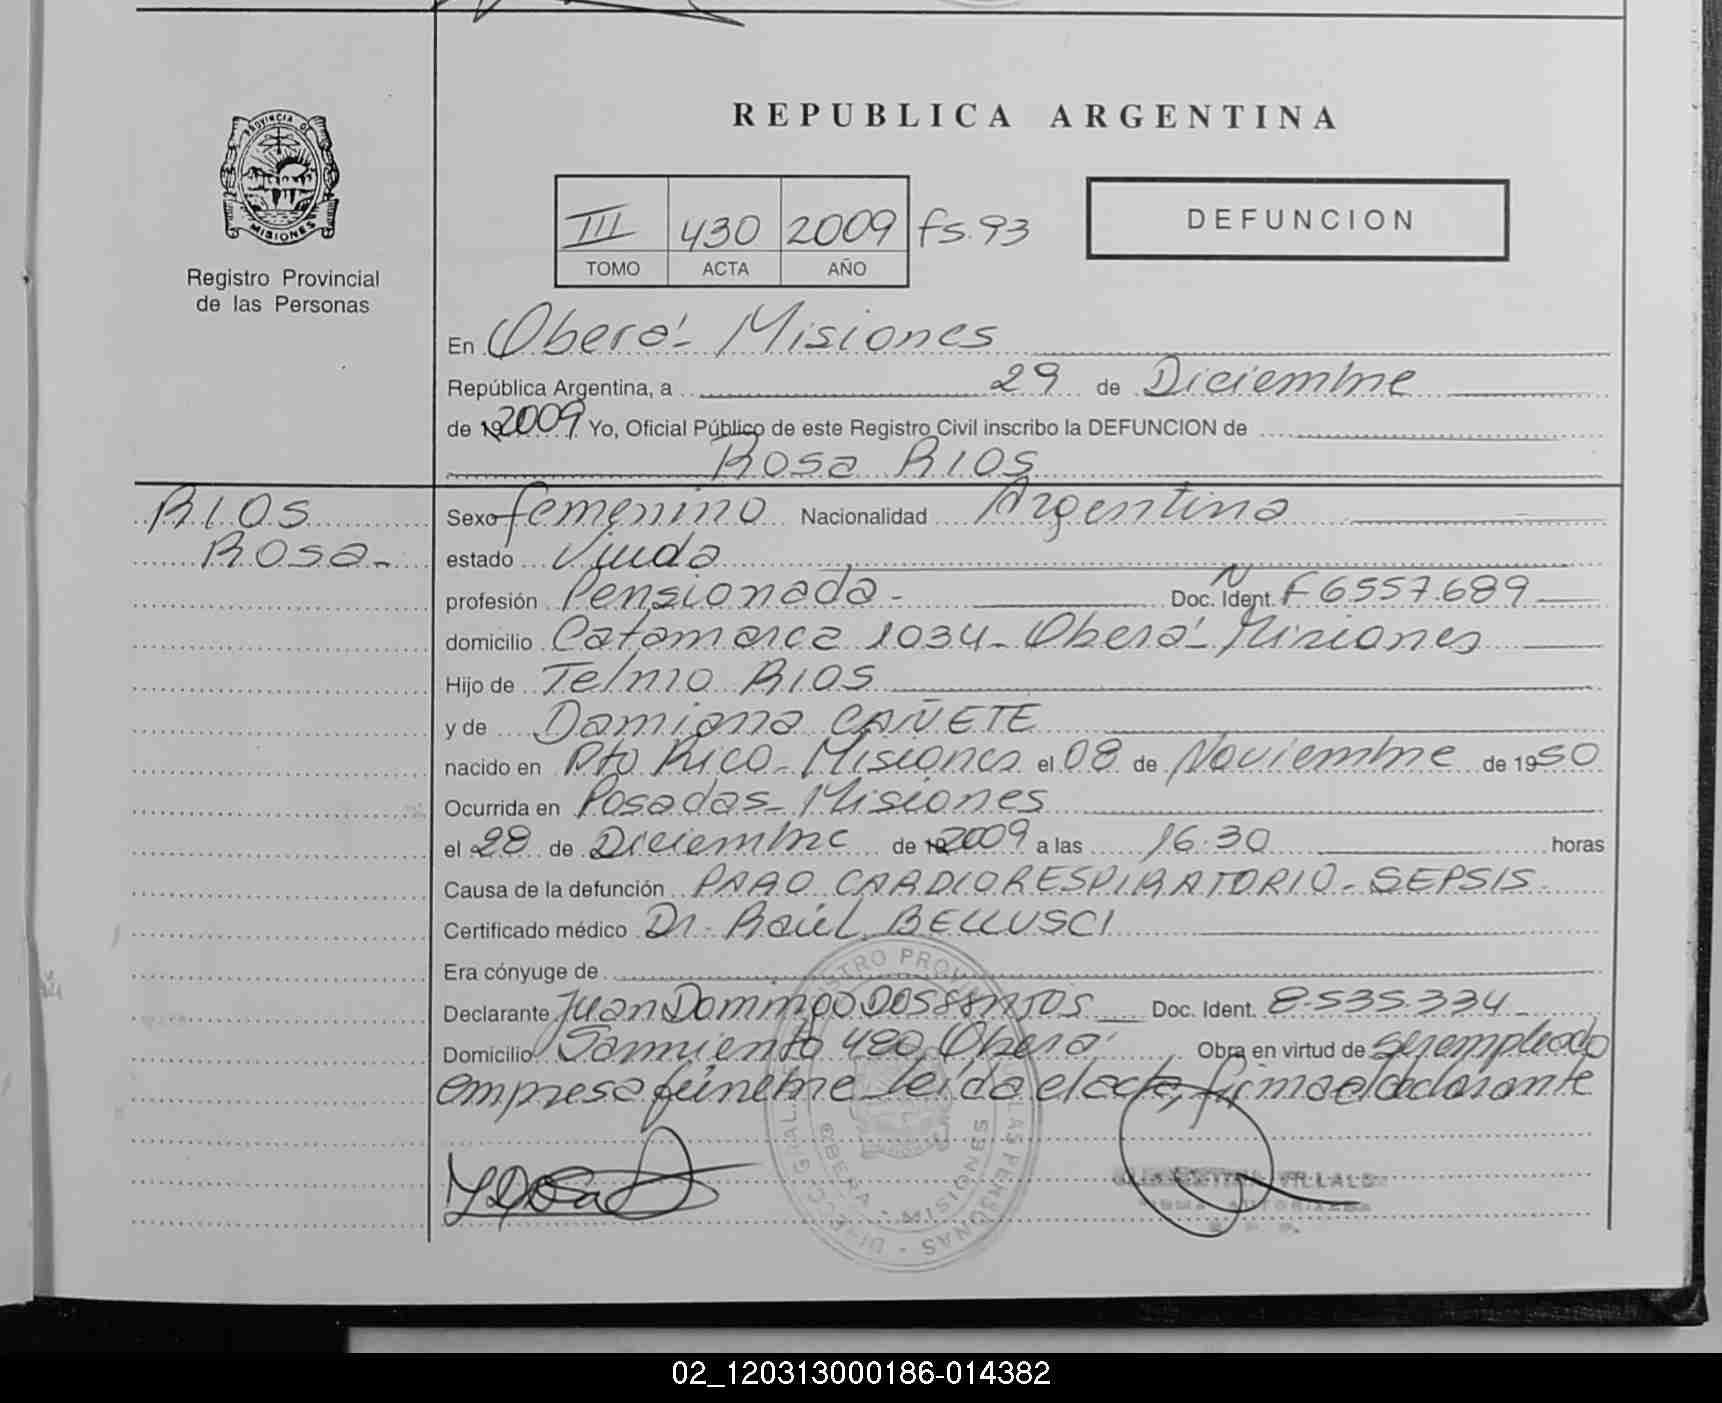 REPUBLICA ARGENTINA
PROVINCIA D
MISIONES
Registro Provincial
de las Personas
III 430 2009 fs. 93
TOMO ACTA AÑO
DEFUNCION
En Oberá - Misiones
República Argentina, a 29 de Diciembre
de 19 2009 Yo, Oficial Público de este Registro Civil inscribo la DEFUNCION de
Rosa RIOS
RIOS
Rosa -
Sexo femenino Nacionalidad Argentina
estado Viuda
profesión Pensionada - Doc. Ident. N F6557.689
domicilio Catamarca 1034 - Oberá - Misiones
Hijo de Telmo RIOS
y de Damiana CAÑETE
nacido en Pto Rico - Misiones el 08 de Noviembre de 1950
Ocurrida en Posadas - Misiones
el 28 de Diciembre de 19 2009 a las 16:30 horas
Causa de la defunción PARO CARDIORESPIRATORIO - SEPSIS
Certificado médico Dr. Raúl BELLUSCI
Era cónyuge de
Declarante Juan Domingo DOS SANTOS Doc. Ident. 8.535.334
Domicilio Sarmiento 420 Oberá Obra en virtud de ser empleado
empresa fúnebre leída el acta, firma el declarante
OBERA - MISIONES
VILLALB
02_120313000186-014382